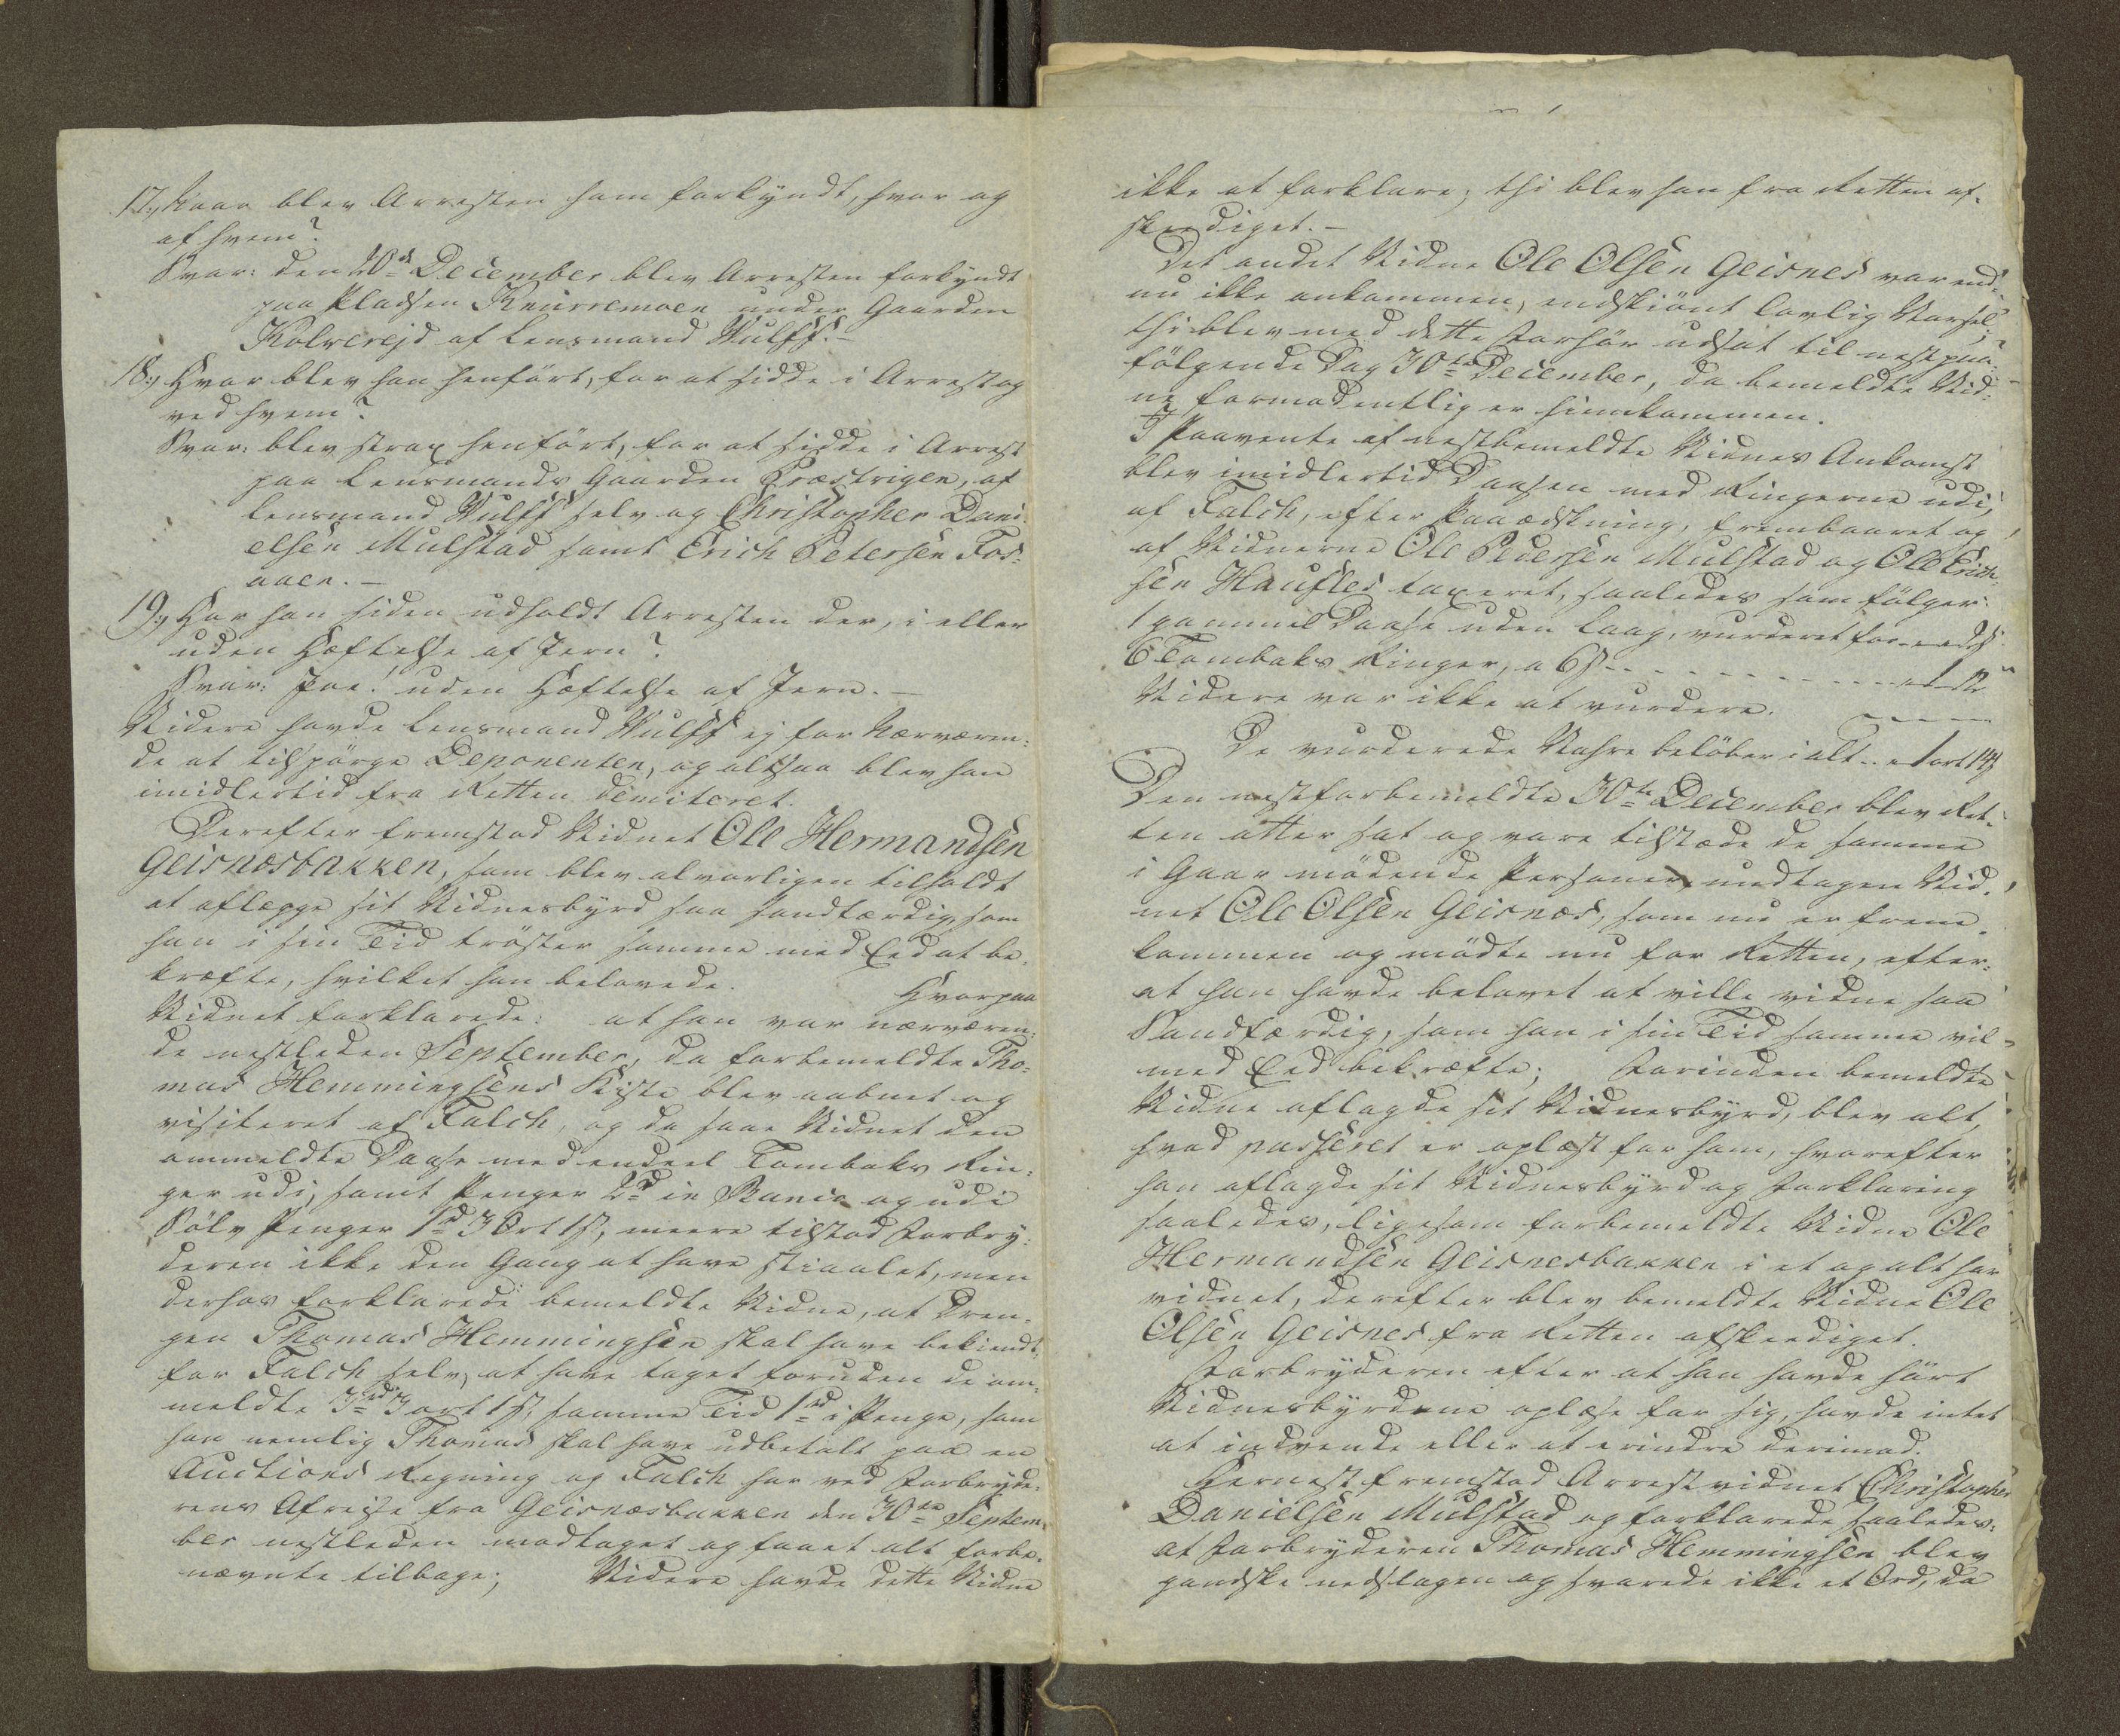 17., Naar blev Arresten ham forkyndt, hvor og
af hvem?
Svar: den 20de December blev Arresten forkyndt
paa Pladsen Knurremoen under Gaarden
Kolverejd af Lensmand Wulff.-
18., Hvor blev han henført, for at sidde i Arrest og
ved hvem?
Svar: blev strax henført, for at sidde i Arrest
paa Lensmands Gaarden Præstrigen, af
Lensmand Wulff selv og Christopher Dani-
elsen Mulstad samt Erich Petersen Fos-
aaen.-
19., Har han siden udholdt Arresten der, i eller
uden Hæftelse af Jern?
Svar: Joe! uden Hæftelse af Jern.-
Videre havde Lensmand Wulff ej for Nærværen-
de at tilspörge Deponenten, og altsaa blev han
imidlertid fra Retten demiteret.
Derefter fremstod Vidnet Ole Hermandsen
Geisnæsbakken, som blev alvorligen tilholdt
at aflægge sit Vidnesbyrd saa sandfærdig, som
han i sin Tid tröster samme med Eed at be-
kræfte, hvilket han belovede. Hvorpaa
Vidnet forklarede: at han var nærværen-
de nestleden September, da forbemeldte Tho-
mas Hemmingsens Kiste blev aabnet og
visiteret af Falch, og da saae Vidnet den
ommeldte Daase med endeel Tombaks Rin-
ger udi, samt Penger 2rd in Banco og udi
Sölv Penger 1rd 3 Ort 1s, meere tilstod Forbry-
deren ikke den Gang at have stiaalet, men
derhos forklarede bemeldte Vidne, at Dren-
gen Thomas Hemmingsen skal have bekiendt
for Falch selv, at have taget foruden de om-
meldte 3rd 3 ort 1s, samme Tid 1rd i Penge, som
han nemlig Thomas skal have udbetalt paa en
Auctions Regning og Falch har ved Forbryde-
rens Afreise fra Geisnæsbakken den 30te Septem-
ber nestleden modtaget og faaet alt forbe-
nævnte tilbage; Videre havde dette Vidne
ikke at forklare; thi blev han fra Retten af-
skeediget.-
Det andet Vidne Ole Olsen Geisnes var end-
nu ikke ankommen, endskiönt lovlig Varsel,
thi blev med dette Forhör udsat til nestpaa-
fölgende Dag 30te December, da bemeldte Vid-
ne formodentlig er hiemkommen.
I Paavente af nestbemeldte Vidnes Ankomst
blev imidlertid Daasen med Ringerne udi,
af Falch, efter Paaædskning, frembaaret og
af Vidnerne Ole Pedersen Mulstad og Ole Erich-
sen Haufles taxeret, saaledes som fölger:
1 gammel Daase uden Laag, vurderet for - - 2s
6 Tombaks Ringer, a 6s - - - - - - - - - - 1 - 12 "
Videre var ikke at vurdere.
De vurderede Vahre belöber i alt - - 1 ort 14s
Den nestforbemeldte 30te December blev Ret-
ten atter sat og vare tilstæde de samme
i Gaar mödende Personer, undtagen Vid-
net Ole Olsen Geisnæs, som nu er frem-
kommen og mödte nu for Retten, efter-
at han havde belovet at ville vidne saa
Sandfærdig, som han i sin Tid samme vil
med Eed bekræfte; Forinden bemeldte
Vidne aflagde sit Vidnesbyrd, blev alt,
hvad passeret er oplæst for ham, hvorefter
han aflagde sit Vidnesbyrd og Forklaring
saaledes, ligesom forbemeldte Vidne Ole
Hermandsen Geisnesbakken i et og alt har
vidnet, derefter blev bemeldte Vidne Ole
Olsen Geisnes fra Retten afskeediget.
Forbryderen efter at han havde hört
Vidnesbyrdene oplæse for sig, havde intet
at indvende eller at erindre derimod.
Hernest fremstod Arrestvidnet Christopher
Danielsen Mulstad og forklarede saaledes:
at Forbryderen Thomas Hemmingsen blev
gandske nedslagen og svarede ikke et Ord, da